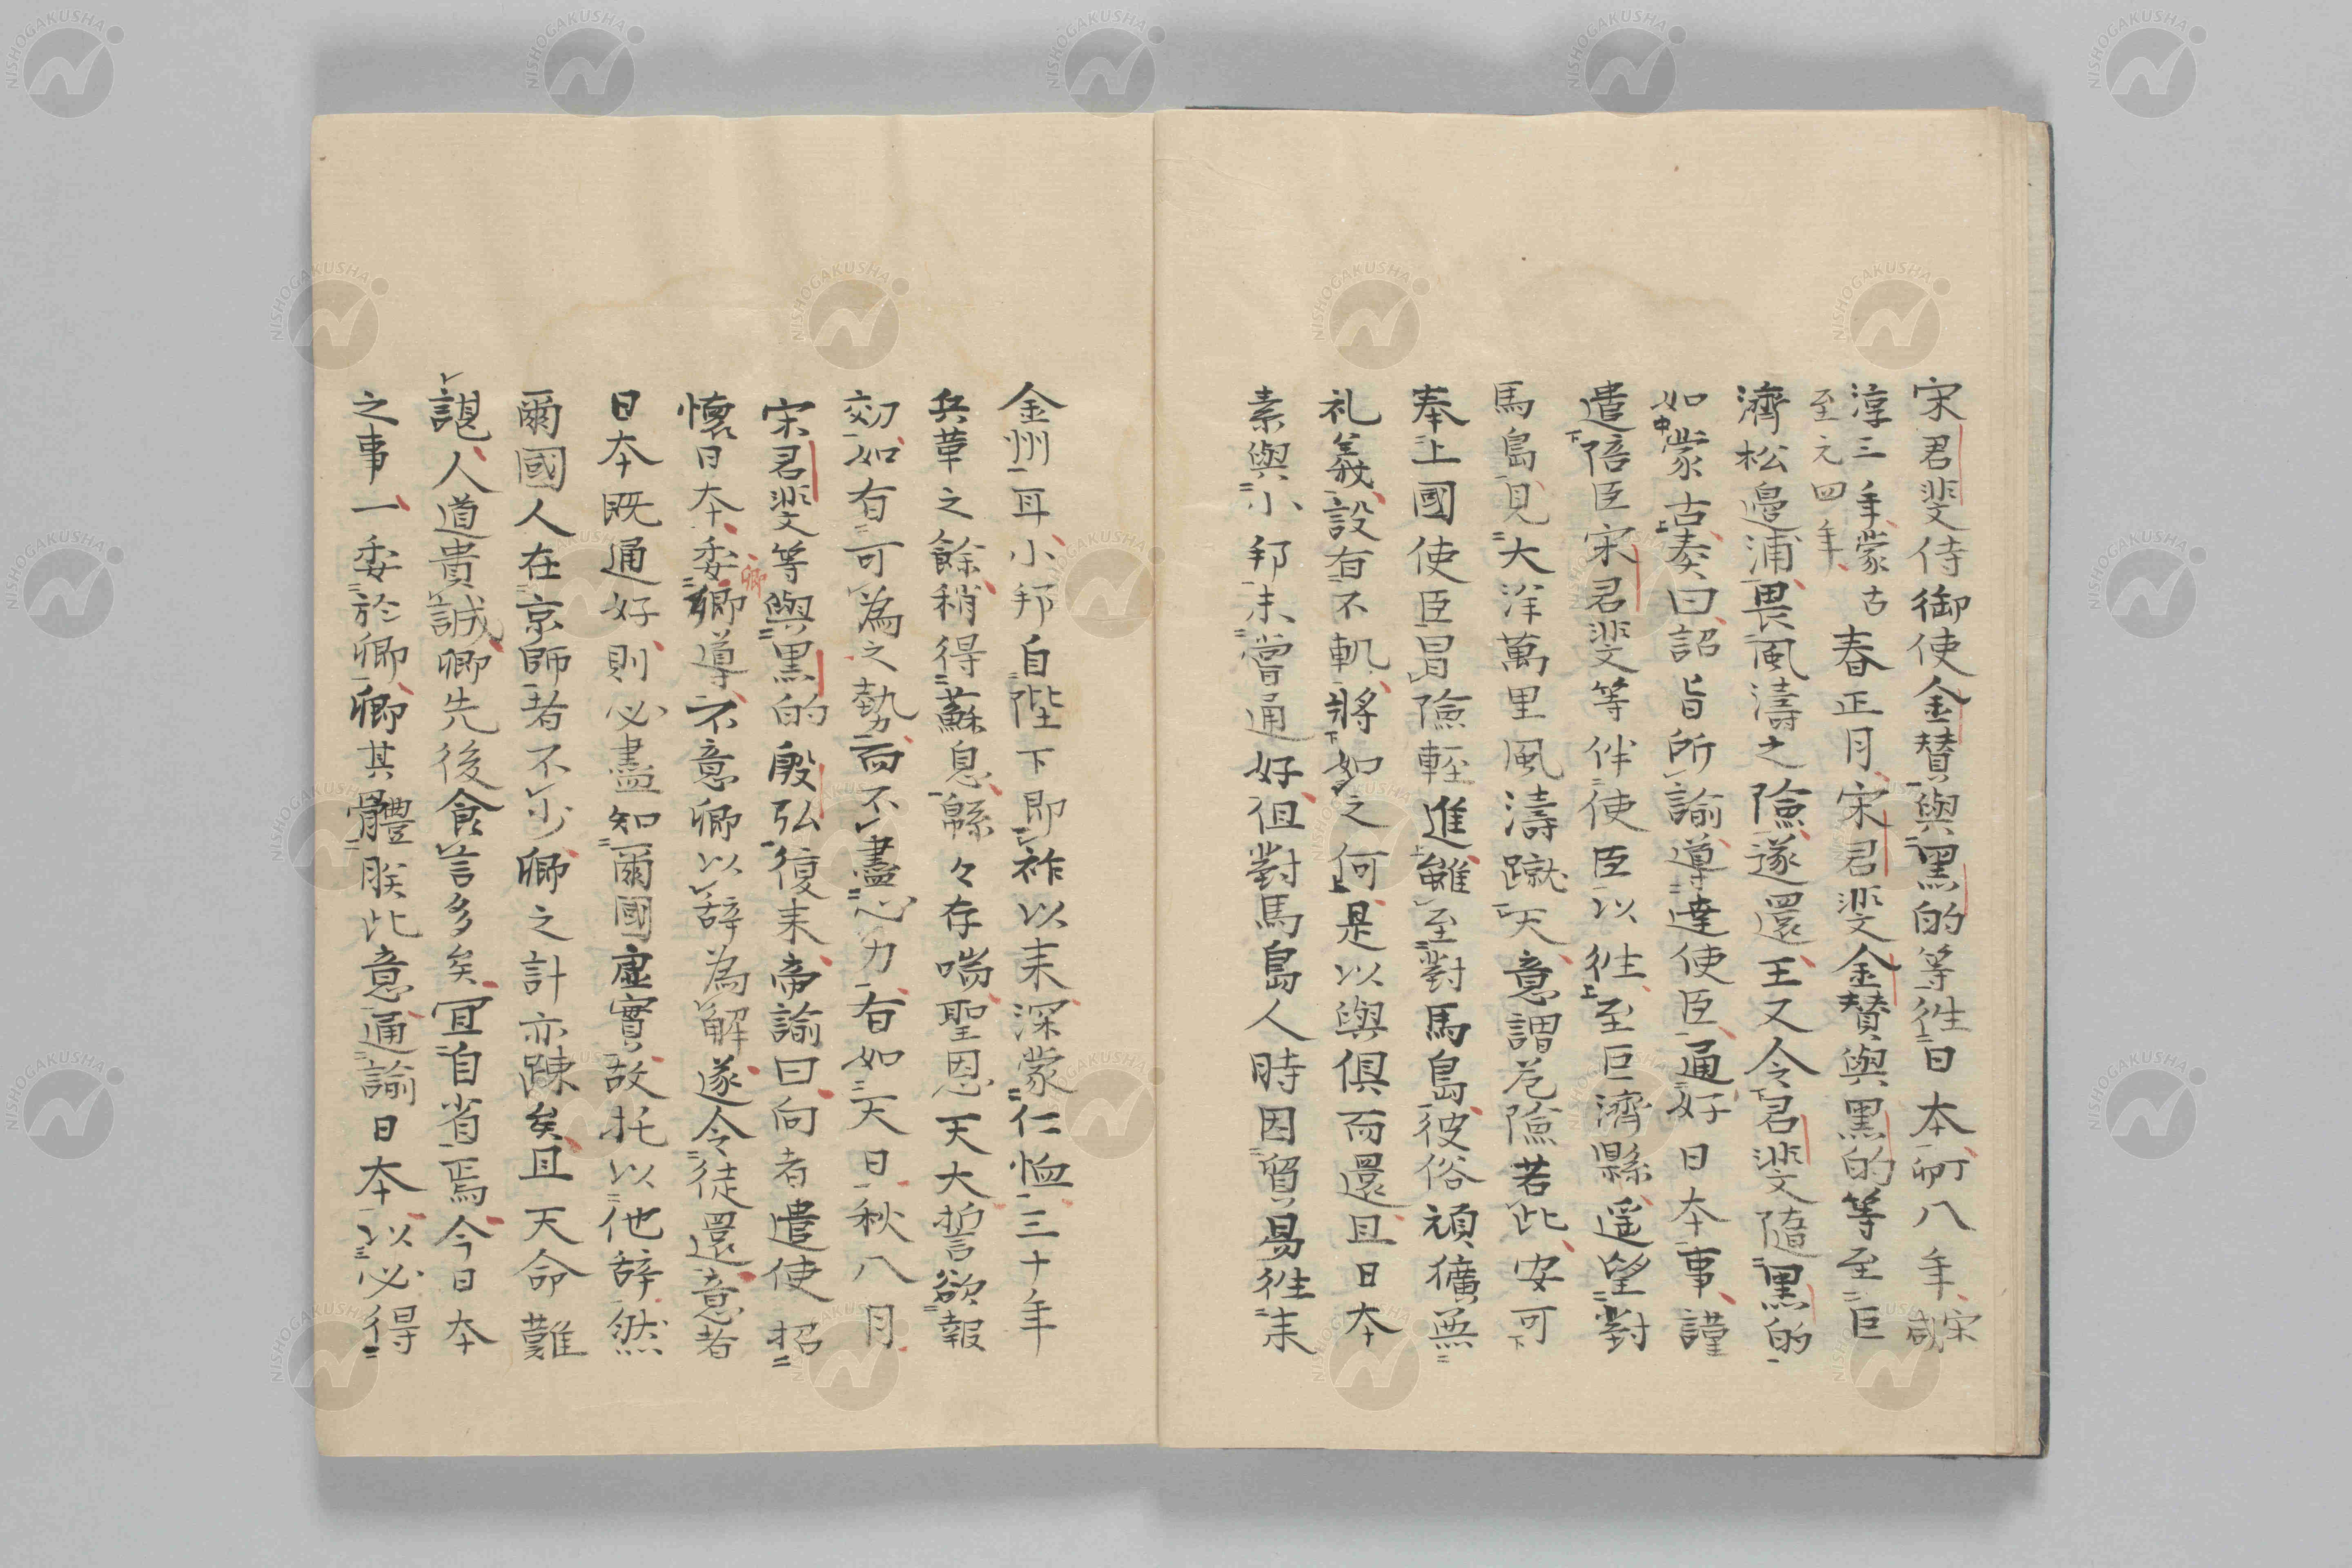 宋君斐侍御使金賛與黒的等徃日本卯八年宋咸
淳三年蒙古至元四年春正月宋君斐金賛與黒的等至巨
濟松邉浦畏風濤之險遂還王又令君斐隨黒的
如蒙古奏曰詔旨所諭導達使臣通好日本事謹
遣陪臣宋君斐等伴使臣以徃至巨濟縣遥望對
馬島見大洋萬里風濤蹴天意謂危險若此安可
奉上國使臣冒險輊進雖至對馬島彼俗頑獷無
礼義設有不軌將如之何是以與俱而還且日本
素與小邦未嘗通好但對馬島人時因貿易徃来
金州耳小邦自陛下即祚以来深蒙仁恤三十年
兵革之餘稍得蘇息緜々存喘聖恩天大誓欲報
効如有可為之勢而不盡心力有如天日秋八月
宋君斐等與黒的殷弘復来帝諭曰向者遣使招
懐日本委卿導不意卿以辞為解遂令徒還意者
卿
日本既通好則必盡知爾國虚實故托以他辞然
爾國人在京師者不少卿之計亦踈矣且天命難
諶人道貴誠卿先後食言多矣冝自省焉今日本
之事一委於卿卿其體朕此意通諭日本以必得
NISHOGAKUSHA